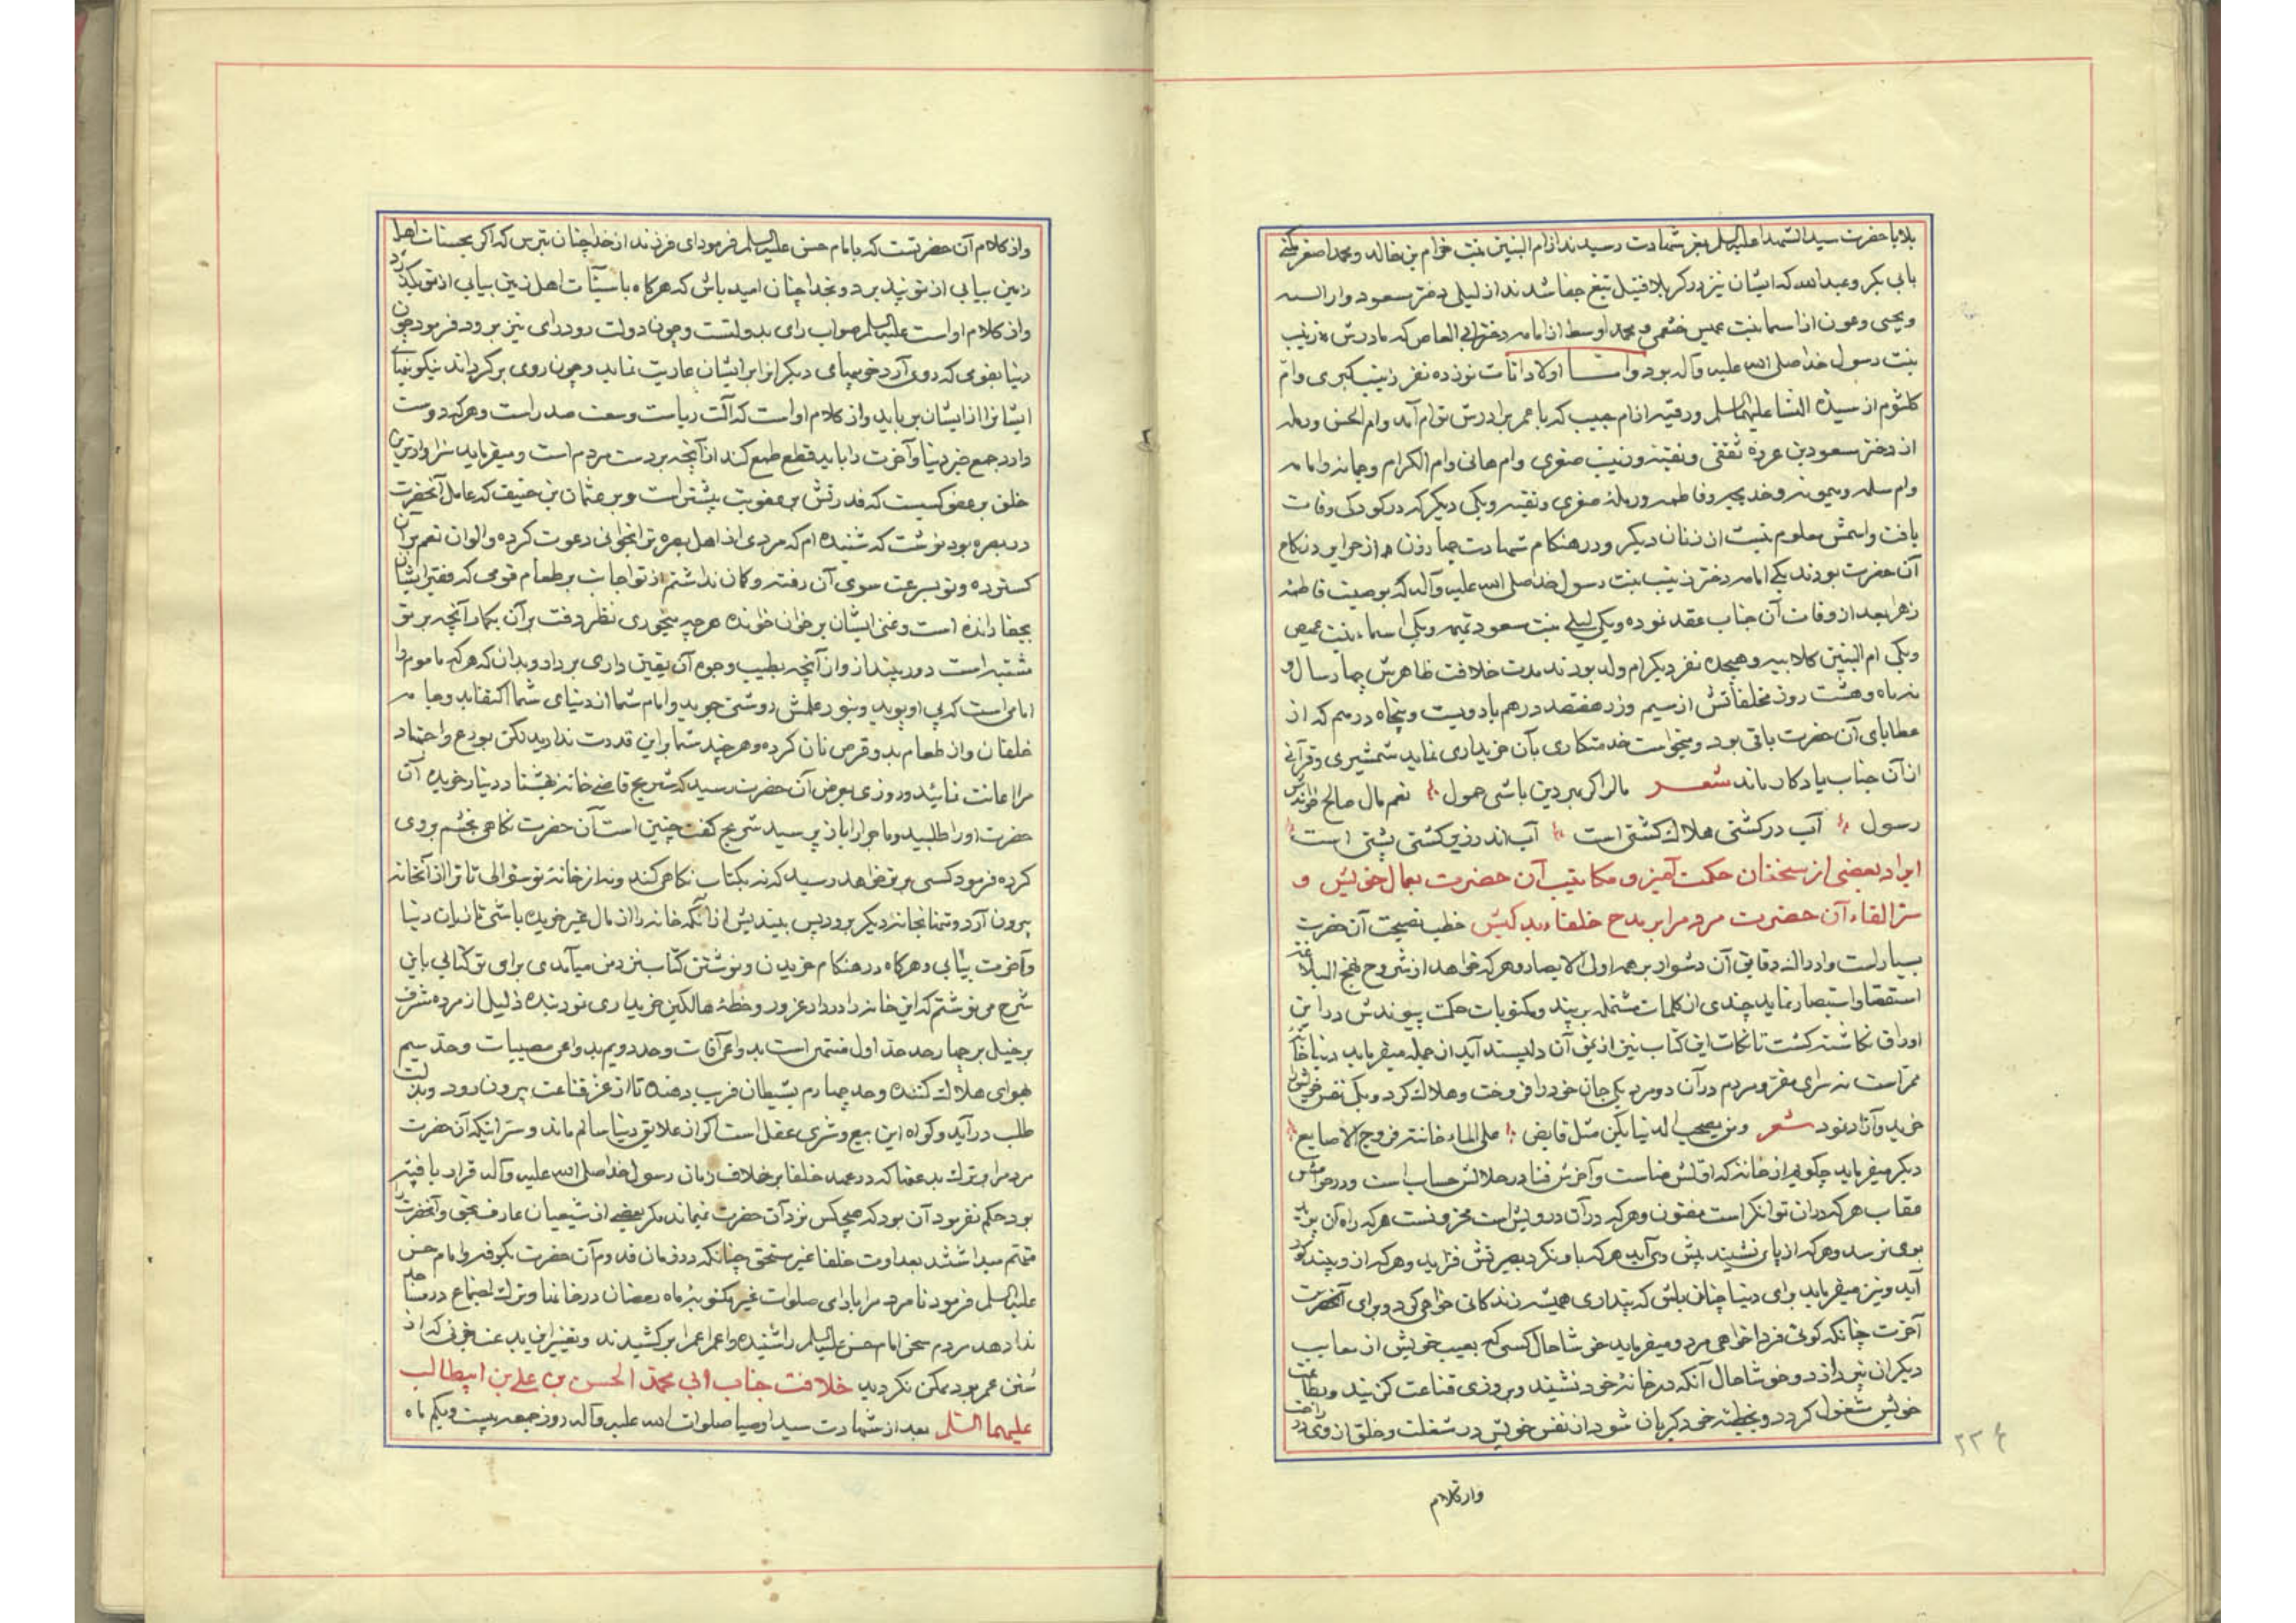 بلا با حضرت سید الشهدا علیه السلم بعز شهادت رسیدند از ام البنین بنت خرام بن خالد و محمد اصغر مکنی
بابی بکر و عبدالله که ایشان نیز در کربلا قتیل تیغ جفا شدند از لیلی دختر مسعود دارالسیه
و یحیی و عون از اسما بنت عمیس خثعمی و محمد اوسط از امامه دختر ابی العاص که مادرش زینب
بنت رسول خدا صلی الله علیه و آله بود و اولاد اناث نوزده نفر زینب کبری و ام
کلثوم از سیدة النسا علیها السلم و رقیه از ام حبیب که با عمر برادرش توام آمد و ام الحسن و رمله
از دختر مسعود بن عروه ثقفی و نفیسه و زینب صغری و ام هانی و ام الکرام و جمانه و امامه
و ام سلمه و میمونه و خدیجه و فاطمه و رملهٔ صغری و نفیسه و یکی دیگر که در کودکی وفات
یافت و اسمش معلوم نیست از زنان دیگر و در هنگام شهادت چهار زن از حرایر در نکاح
آن حضرت بودند یکی امامه دختر زینب بنت رسول خدا صلی الله علیه و آله که بوصیت فاطمه
زهرا بعد از وفات آن جناب عقد نموده و یکی لیلی بنت مسعود تمیمیه و یکی اسماء بنت عمیس
و یکی ام البنین کلابیه و هیجده نفر دیگر ام ولد بودند مدت خلافت ظاهرش چهار سال و
نه ماه و هشت روز مخلفاتش از سیم و زر هفتصد درهم یا دویست و پنجاه درهم که از
عطایای آن حضرت باقی بود و میخواست خدمتکاری بآن خریداری نماید شمشیری و قرآنی
از آن جناب یادکار ماند شعر مال را کر بهر دین باشی حمول نعم مال صالح خواندش
رسول آب در کشتی هلاک کشتی است آب اندر زیر کشتی پشتی است
ایراد بعضی از سخنان حکمت آمیز و مکاتیب آن حضرت بعمال خویش و
سر القاء آن حضرت مردم را بر مدح خلفاء بد کیش خطب نصیحت آن حضرت
بسیار است و ادراک دقایق آن دشوار بر همه اولی الابصار و هر که خواهد از شروح نهج البلاغه
استقصا و استبصار نماید چندی از کلمات مشتمله بر پند و مکتوبات حکمت پیوندش در این
اوراق نکاشته کشت تا نکات این کتاب نیز از یمن آن دلپسند آید از جمله میفرماید دنیا خانهٔ
ممر است نه سرای مقر و مردم در آن دو مرد یکی جان خود را فروخت و هلاک کرد و یکی نفس خویش را
خرید و آزاد نمود شعر و من یصحب الدنیا یکن مثل قابض علی الماء خانته فروج الاصابع
دیگر میفرماید چکویم از خانهٔ که اولش عناست و آخرش فنا در حلالش حساب است و در حرامش
عقاب هر که در ان توانکر است مفتون و هر که در آن درویش است محزونست هر که راه آن پوید
بوی نرسد و هر که از پا نشیند پیش وی آید هر که باو نکرد بصیرتش فزاید و هر که از او بیند کور
آید و نیز میفرماید برای دنیا چنان باش که پنداری همیشه زندکانی خواهی کرد و برای آخرت
آخرت چنانکه کوئی فردا خواهی مرد و میفرماید خوشا حال کسی که بعیب خویش از معایب
دیگران پردازد و خوشا حال آنکه در خانهٔ خود نشیند و بروزی قناعت کزیند و بطاعت
خویش مشغول کردد و بخطیئه خود کریان شود از نفس خویش در شغلت و خلق از وی در راحت
۲۲۶
و از کلام
و از کلام آن حضرتست که بامام حسن علیه السلم فرمود ای فرزند از خدا چنان بترس که اکر بحسنات اهل
زمین بیایی از تو نپذیرد و بخدا چنان امید باش که هر کاه با سیئات اهل زمین بیایی از تو بکذرد
و از کلام او است علیه السلم صواب رای بدولتست و چون دولت رود رای نیز برود فرمود چون
دنیا بقومی که روی آرد خوبیهای دیگرانرا بر ایشان عاریت نماید و چون روی برکرداند نیکوییهای
ایشانرا از ایشان برباید و از کلام او است که آلت ریاست وسعت صدر است و هر که دوست
دارد جمع خیر دنیا و آخرت را باید قطع طمع کند از آنچه بر دست مردم است و میفرماید سزاوارترین
خلق بر عفو کسیست که قدرتش بر عقوبت بیشتر است و بر عثمان بن حنیف که عامل آنحضرت
در بصره بود نوشت که شنیده ام که مردی از اهل بصره ترا بخوانی دعوت کرده و الوان نعم بر آن
کسترده و تو بسرعت سوی آن رفته و کمان نداشتم از تو اجابت بر طعام قومی که فقیر ایشان
بجفا رانده است و غنی ایشان بر خوان خوانده هر چه میخوری نظر دقت بر آن بکمار آنچه بر تو
مشتبه است دور بینداز و ان آنچه بطیب وجوه آن یقین داری بردار و بدان که هر که ماموم را
امامی است که پی او پوید و بنور علمش روشنی جوید و امام شما از دنیای شما اکتفا بدو جامه
خلقان و از طعام بدو قرص نان کرده و هر چند شما بر این قدرت ندارید لکن بورع و اجتهاد
مرا اعانت نمائید و روزی بعرض آن حضرت رسید که شریح قاضی خانه بهشتاد دینار خریده آن
حضرت او را طلبید و ماجرا را باز پرسید شریح کفت چنین است آن حضرت نکاهی بخشم بروی
کرده فرمود کسی بر تو خواهد رسید که نه بکتاب نکاهی کند و نه از خانهٔ تو سؤالی تا ترا از آنخانه
بیرون آرد و تنها بخانهٔ دیگر برد پس بیندیش از آنکه خانه را از مال غیر خریده باشی تا زیان دنیا
و آخرت بیابی و هر کاه در هنکام خریدن و نوشتن کتاب نزد من میآمدی برای تو کتابی باین
شرح می نوشتم که این خانه را در دار غرور و خطهٔ هالکین خریداری نمود بنده ذلیل از مرده مشرف
بر رحیل بر چهار حد حد اول منتهی است بدواعی آفات و حد دویم بدواعی مصیبات و حد سیم
بهوای هلاک کننده و حد چهارم بشیطان فریب دهنده تا از عز قناعت بیرون رود و بذلت
طلب در آید و کواه این بیع و شری عقل است اکر از علایق دنیا سالم ماند و سر اینکه آن حضرت
مردم را بر ترک بدعتها که در عهد خلفا بر خلاف زمان رسول خدا صلی الله علیه و آله قرار یافته
بود حکم نفرمود آن بود که هیچکس نزد آن حضرت نمیماند مکر بعضی از شیعیان عارف بحق و آنحضرت را
متهم میداشتند بعداوت خلفا غیر مستحق چنانکه در زمان قدوم آن حضرت بکوفه و امام حسن
علیه السلم فرمود تا مردم را بادای صلوات غیر مکتوبهٔ ماه رمضان در خانها و ترک اجتماع در مساجد
ندا دهد مردم سخن امام حسن علیه السلم را شنیده واعمرا عمرا برکشیدند و تغییر این بدعت خونی که از
سنن عمر بود ممکن نکردید خلافت جناب ابی محمد الحسن بن علی بن ابیطالب
علیهما السلم بعد از شهادت سید اوصیا صلوات الله علیه و آله روز جمعه بیست و یکم ماه